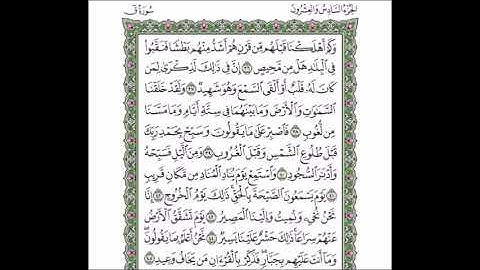 الجزء السادس والعشرون سورة ق
وَكَمْ أَهْلَكْنَا قَبْلَهُم مِّن قَرْنٍ هُمْ أَشَدُّ مِنْهُم بَطْشًا فَنَقَّبُوا۟
فِى ٱلْبِلَٰدِ هَلْ مِن مَّحِيصٍ ٣٦ إِنَّ فِى ذَٰلِكَ لَذِكْرَىٰ لِمَن
كَانَ لَهُۥ قَلْبٌ أَوْ أَلْقَى ٱلسَّمْعَ وَهُوَ شَهِيدٌ ٣٧ وَلَقَدْ خَلَقْنَا
ٱلسَّمَٰوَٰتِ وَٱلْأَرْضَ وَمَا بَيْنَهُمَا فِى سِتَّةِ أَيَّامٍ وَمَا مَسَّنَا
مِن لُّغُوبٍ ٣٨ فَٱصْبِرْ عَلَىٰ مَا يَقُولُونَ وَسَبِّحْ بِحَمْدِ رَبِّكَ
قَبْلَ طُلُوعِ ٱلشَّمْسِ وَقَبْلَ ٱلْغُرُوبِ ٣٩ وَمِنَ ٱلَّيْلِ فَسَبِّحْهُ
وَأَدْبَٰرَ ٱلسُّجُودِ ٤٠ وَٱسْتَمِعْ يَوْمَ يُنَادِ ٱلْمُنَادِ مِن مَّكَانٍ قَرِيبٍ
٤١ يَوْمَ يَسْمَعُونَ ٱلصَّيْحَةَ بِٱلْحَقِّ ذَٰلِكَ يَوْمُ ٱلْخُرُوجِ ٤٢ إِنَّا
نَحْنُ نُحْىِۦ وَنُمِيتُ وَإِلَيْنَا ٱلْمَصِيرُ ٤٣ يَوْمَ تَشَقَّقُ ٱلْأَرْضُ
عَنْهُمْ سِرَاعًا ذَٰلِكَ حَشْرٌ عَلَيْنَا يَسِيرٌ ٤٤ نَّحْنُ أَعْلَمُ بِمَا يَقُولُونَ
وَمَآ أَنتَ عَلَيْهِم بِجَبَّارٍ فَذَكِّرْ بِٱلْقُرْءَانِ مَن يَخَافُ وَعِيدِ ٤٥